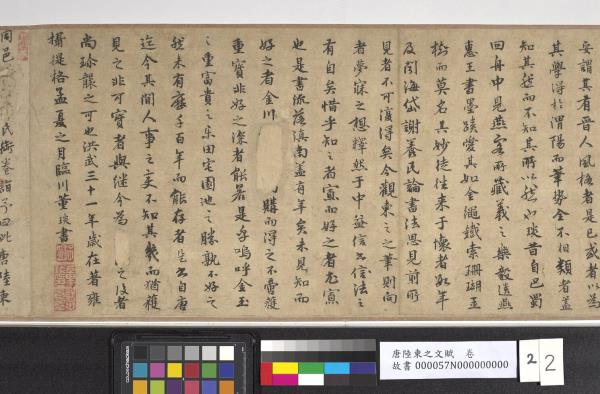 妄謂其有晉人風格者是已或以為
其學得於渭陽而筆勢全不相類者蓋
知其然而不知其所以然也琰昔自巴蜀
回舟中見燕客所藏羲之樂毅遺燕
惠王書墨蹟愛其如金繩鐵索珊瑚玉
樹而莫名其妙徒往來于懷者數年
及閱海岱謝養民論書法思見前所
見者不可復得矣今觀東之之筆則向
者夢寐之想釋然于中益信書法之
有自矣惜乎知之者寡而好之者尤寡
也是書流落滇南蓋有年矣未見知而
好之者金川
購而得之不啻獲
重寶非好之深者能若是乎嗚呼金玉
之重富貴之樂田宅園池之勝孰不好之
然未有歷千百年而能存者是書自唐
迄今其間人事之變不知其幾而猶獲
見之非可寶者與繼今為
之後者
尚珍襲之可也洪武三十一年歲在著雍
攝提格孟夏之月臨川董琰書
同邑
氏衛卷詣予曰此唐陸東
唐陸東之文賦 卷
故書 000057N000000000
2
2